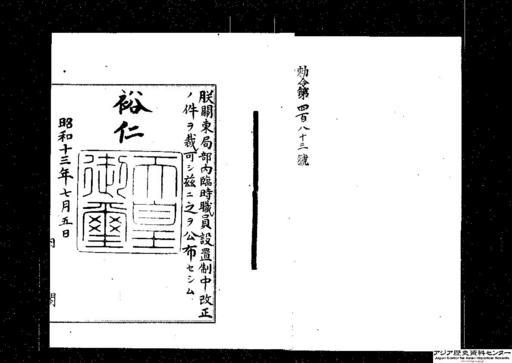 勅令第四百八十三號
朕關東局部内臨時職員設置制中改正
ノ件ヲ裁可シ茲ニ之ヲ公布セシム
裕仁
天皇
御璽
昭和十三年七月五日
アジア歴史資料センター
Japan Center for Asian Historical Records